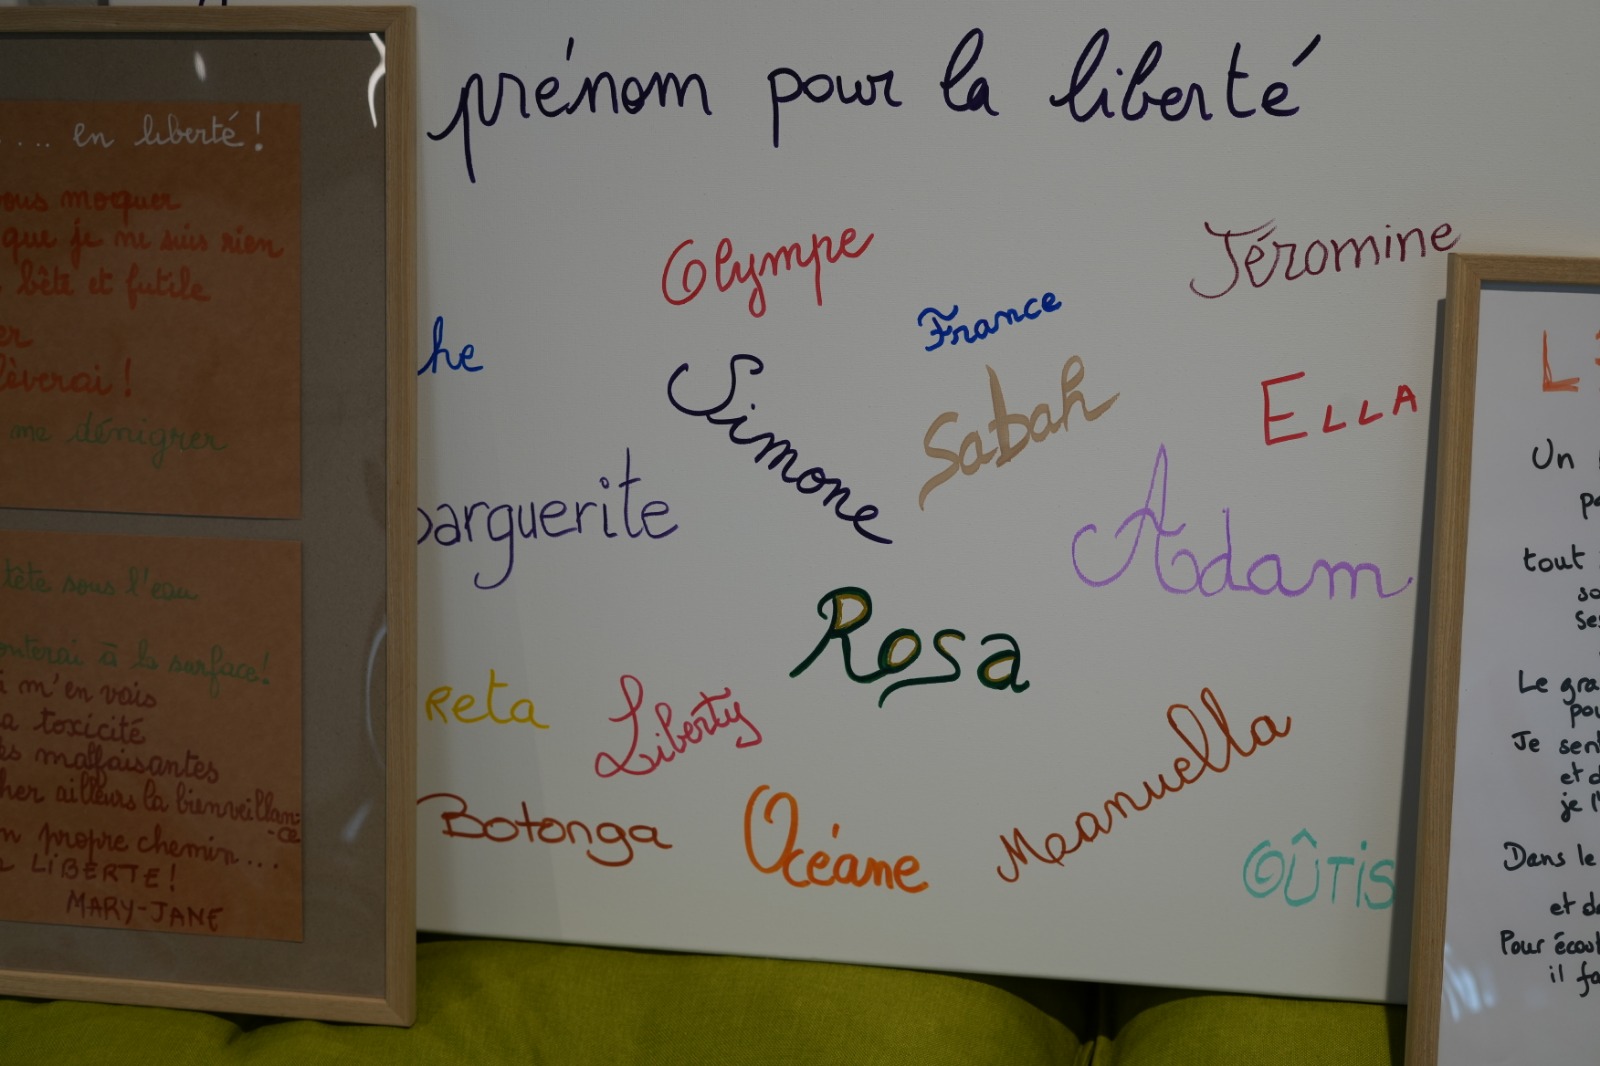 prénom pour la liberté
Olympe
Jéromine
France
he
Simone
Sabah
ELLA
arguerite
Adam
Rosa
Reta
Liberty
Botonga
Océane
Meanuella
OÛTIS
.... en liberté!
ous moquer
que je ne suis rien
bête et futile
er
lèverai!
me dénigrer
tête sous l'eau
onterai à la surface!
m'en vais
a toxicité
es malfaisantes
her ailleurs la bienveillan-
-ce
n propre chemin...
LIBERTE!
MARY-JANE
L
Un
tout
so
Le gra
pou
Je sent
et d
je l'
Dans le
et de
Pour écout
il fa